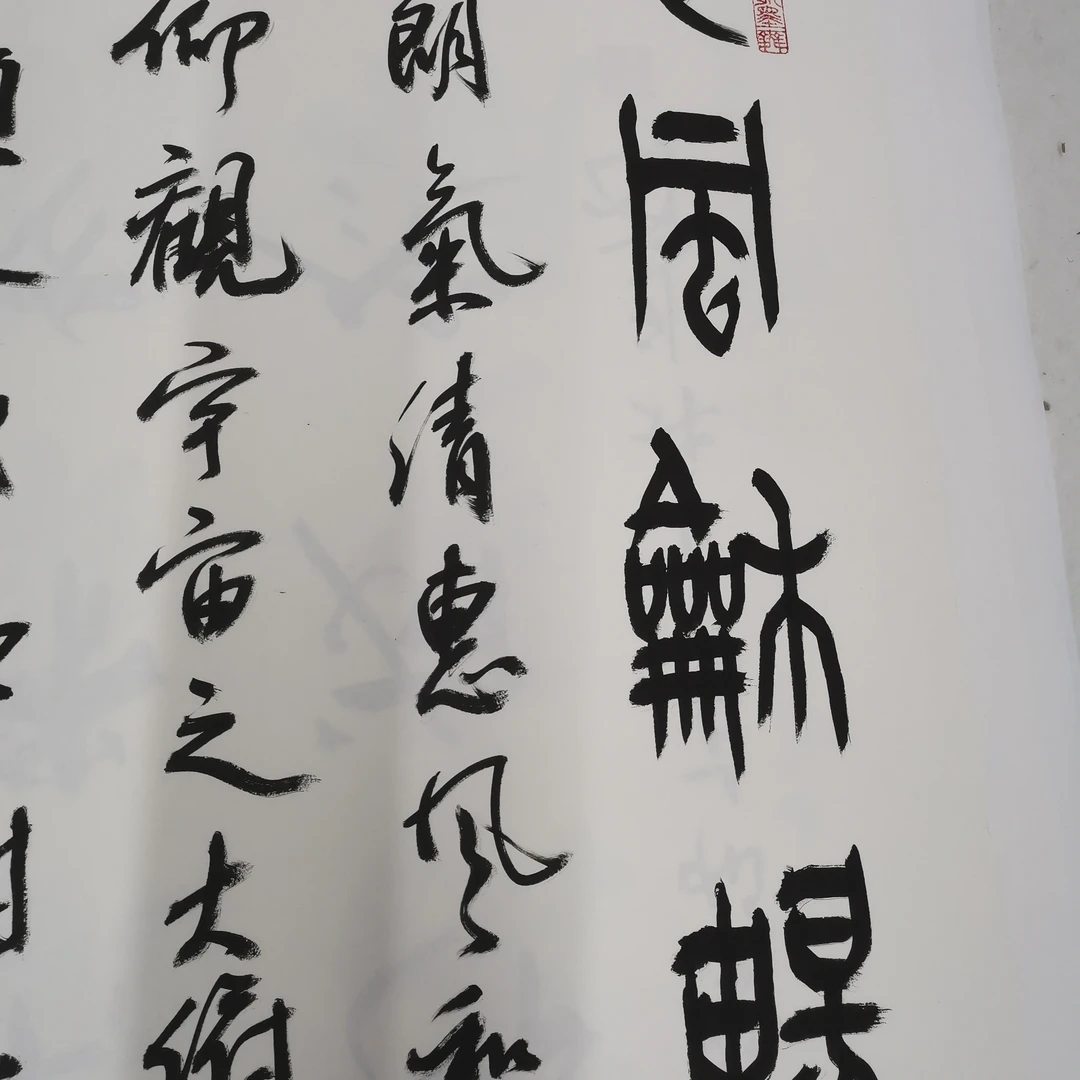 風龢暢
朗氣清惠風和
仰觀宇宙之大俯